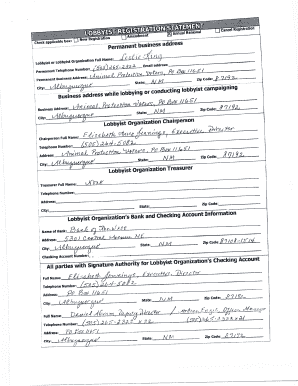 LOBBYIST REGISTRATION STATEMENT
Check applicable box: New Registration Amendment Annual Renewal Cancel Registration
Permanent business address
Lobbyist or Lobbyist Organization Full Name: Leslie King
Permanent Telephone Number: (505) 265-2322 Email address:
Permanent Business Address: Animal Protection Voters, PO Box 11651
City: Albuquerque State: NM Zip Code: 87192
Business address while lobbying or conducting lobbyist campaigning
Business Address: Animal Protection Voters, PO Box 11651
City: Albuquerque State: NM Zip Code: 87192
Lobbyist Organization Chairperson
Chairperson Full Name: Elisabeth Jennings, Executive Director
Telephone Number: (505) 264-5082
Address: Animal Protection Voters, PO Box 11651
City: Albuquerque State: NM Zip Code: 87192
Lobbyist Organization Treasurer
Treasurer Full Name:
Telephone Number:
Address:
City: State: Zip Code:
Lobbyist Organization's Bank and Checking Account Information
Name of Bank: Bank of The West
Address: 5301 Central Avenue NE
City: Albuquerque State: NM Zip Code: 87108-1514
Checking Account Number:
All parties with Signature Authority for Lobbyist Organization's Checking Account
Full Name: Elisabeth Jennings, Executive Director
Telephone Number: (505) 264-5082
Address: PO Box 11651
City: Albuquerque State: NM Zip Code: 87192
Full Name: Daniel Abram Deputy Director / Office Manager
Telephone Number: (505) 265-2322
Address: PO Box 11651
City: Albuquerque State: NM Zip Code: 87192